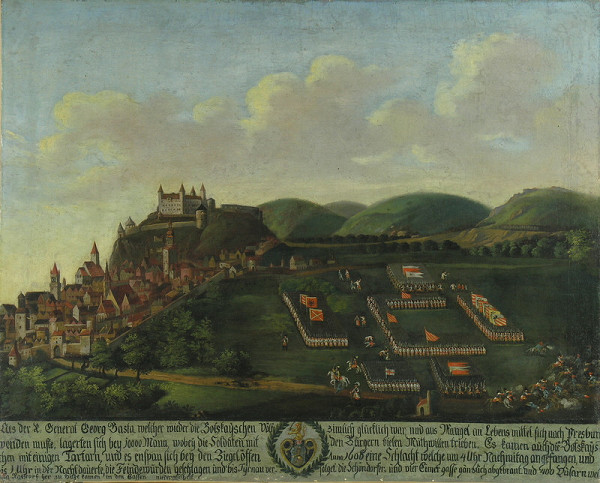 Als der K. General Georg Basta, welcher wieder die Botskayschen Völ zimlich glücklich war, und aus Mangel an Lebens mittel sich nach Presbur
wenden muste, lagerten sich bey 5000 Mann, wobey die Soldaten mit den Bürgern vielen Muthwillen trieben. Es kamen auch die Botskays
chen mit einigen Tartarn, und es entspan sich bey den Zigel öffen Anno 1608 eine Schlacht welche um 4 Uhr Nachmittag angefangen, und
bis 1 Uhr in der Nacht dauerte, die Feinde wurden geschlagen und bis Tyrnau ver folget. die Schöndorfer und vier Einer gasse gänzlich abgebrant, und
her zu in den